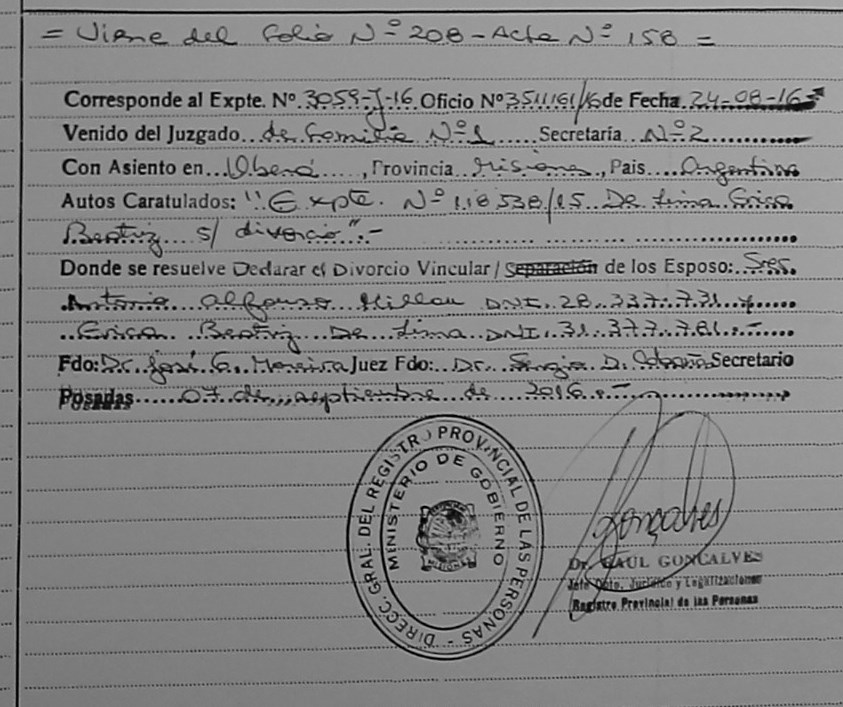 = Viene del Folio Nº 208 - Acta Nº 158 =
Corresponde al Expte. Nº 3059-J-16 Oficio Nº 3511161/16 de Fecha 24-08-16
Venido del Juzgado de Familia Nº 1 Secretaría Nº 2
Con Asiento en Oberá, Provincia Misiones, Pais Argentina
Autos Caratulados: "Expte. Nº 118538/15 De Lima Erica
Beatriz s/ divorcio".-
Donde se resuelve Declarar el Divorcio Vincular / Separación de los Esposo: Sres.
Antonio Alfonso Millau DNI. 28.337.731 y
Erica Beatriz De Lima DNI. 31.377.781.-
Fdo: Dr. José G. Moreira Juez Fdo: Dr. Sergio D. Secretario
Posadas 07 de septiembre de 2016.-
DIRECC. GRAL. DEL REGISTRO PROVINCIAL DE LAS PERSONAS -
MINISTERIO DE GOBIERNO
Gonçalves
Dr. RAUL GONCALVES
Jefe Dpto. Jurídico y Legalizaciones
Registro Provincial de las Personas